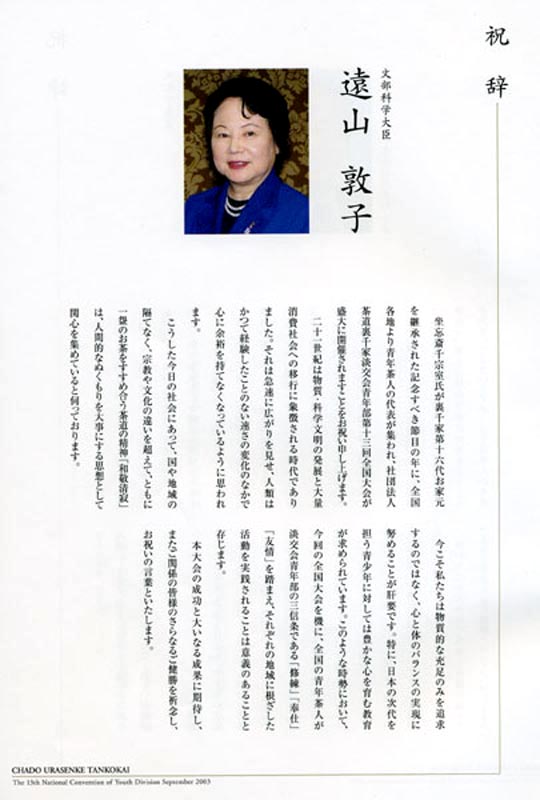 祝辞
文部科学大臣
遠山 敦子
坐忘斎千宗室氏が裏千家第十六代お家元
を継承された記念すべき節目の年に、全国
各地より青年茶人の代表が集われ、社団法人
茶道裏千家淡交会青年部第十三回全国大会が
盛大に開催されますことをお祝い申し上げます。
二十一世紀は物質・科学文明の発展と大量
消費社会への移行に象徴される時代であり
ました。それは急速に広がりを見せ、人類は
かつて経験したことのない速さの変化のなかで
心に余裕を持てなくなっているように思われ
ます。
こうした今日の社会にあって、国や地域の
隔てなく、宗教や文化の違いを超えて、ともに
一盌のお茶をすすめ合う茶道の精神「和敬清寂」
は、人間的なぬくもりを大事にする思想として
関心を集めていると伺っております。
今こそ私たちは物質的な充足のみを追求
するのではなく、心と体のバランスの実現に
努めることが肝要です。特に、日本の次代を
担う青少年に対しては豊かな心を育む教育
が求められています。このような時勢において、
今回の全国大会を機に、全国の青年茶人が
淡交会青年部の三信条である「修練」「奉仕」
「友情」を踏まえ、それぞれの地域に根ざした
活動を実践されることは意義のあることと
存じます。
本大会の成功と大いなる成果に期待し、
またご関係の皆様のさらなるご健勝を祈念し、
お祝いの言葉といたします。
CHADO URASENKE TANKOKAI
The 13th National Convention of Youth Division September 2003